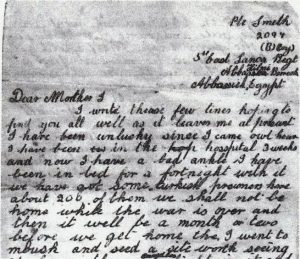 Pte Smith
2097
(B Coy)
5th East Lancs Regt
Abbassia
Abbassieh, Egypt
Dear Mother I
I write these few lines hoping to
find you all well as it leaves me at present
I have been unlucky since I came out hear
I have been in the hospital 3 weeks
and now I have a bad ankle I have
been in bed for a fortnight with it
we have got some turkish prisoners here
about 200 of them we shall not be
home while the war is over and
then it will be a month or two
before we get home the, I went to
and seed a site worth seeing